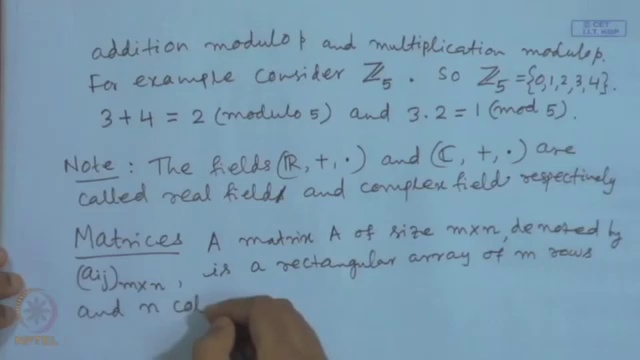 © CET
I.I.T. KGP
addition modulo p and multiplication modulo p.
For example consider ℤ₅. So ℤ₅ = {0,1,2,3,4}.
3+4 = 2 (modulo 5) and 3.2 = 1 (mod 5).
Note : The fields (ℝ, +, ·) and (ℂ, +, ·) are
called real field and complex field respectively
Matrices A matrix A of size m×n, denoted by
(aij)m×n, is a rectangular array of m rows
and n col
NPTEL